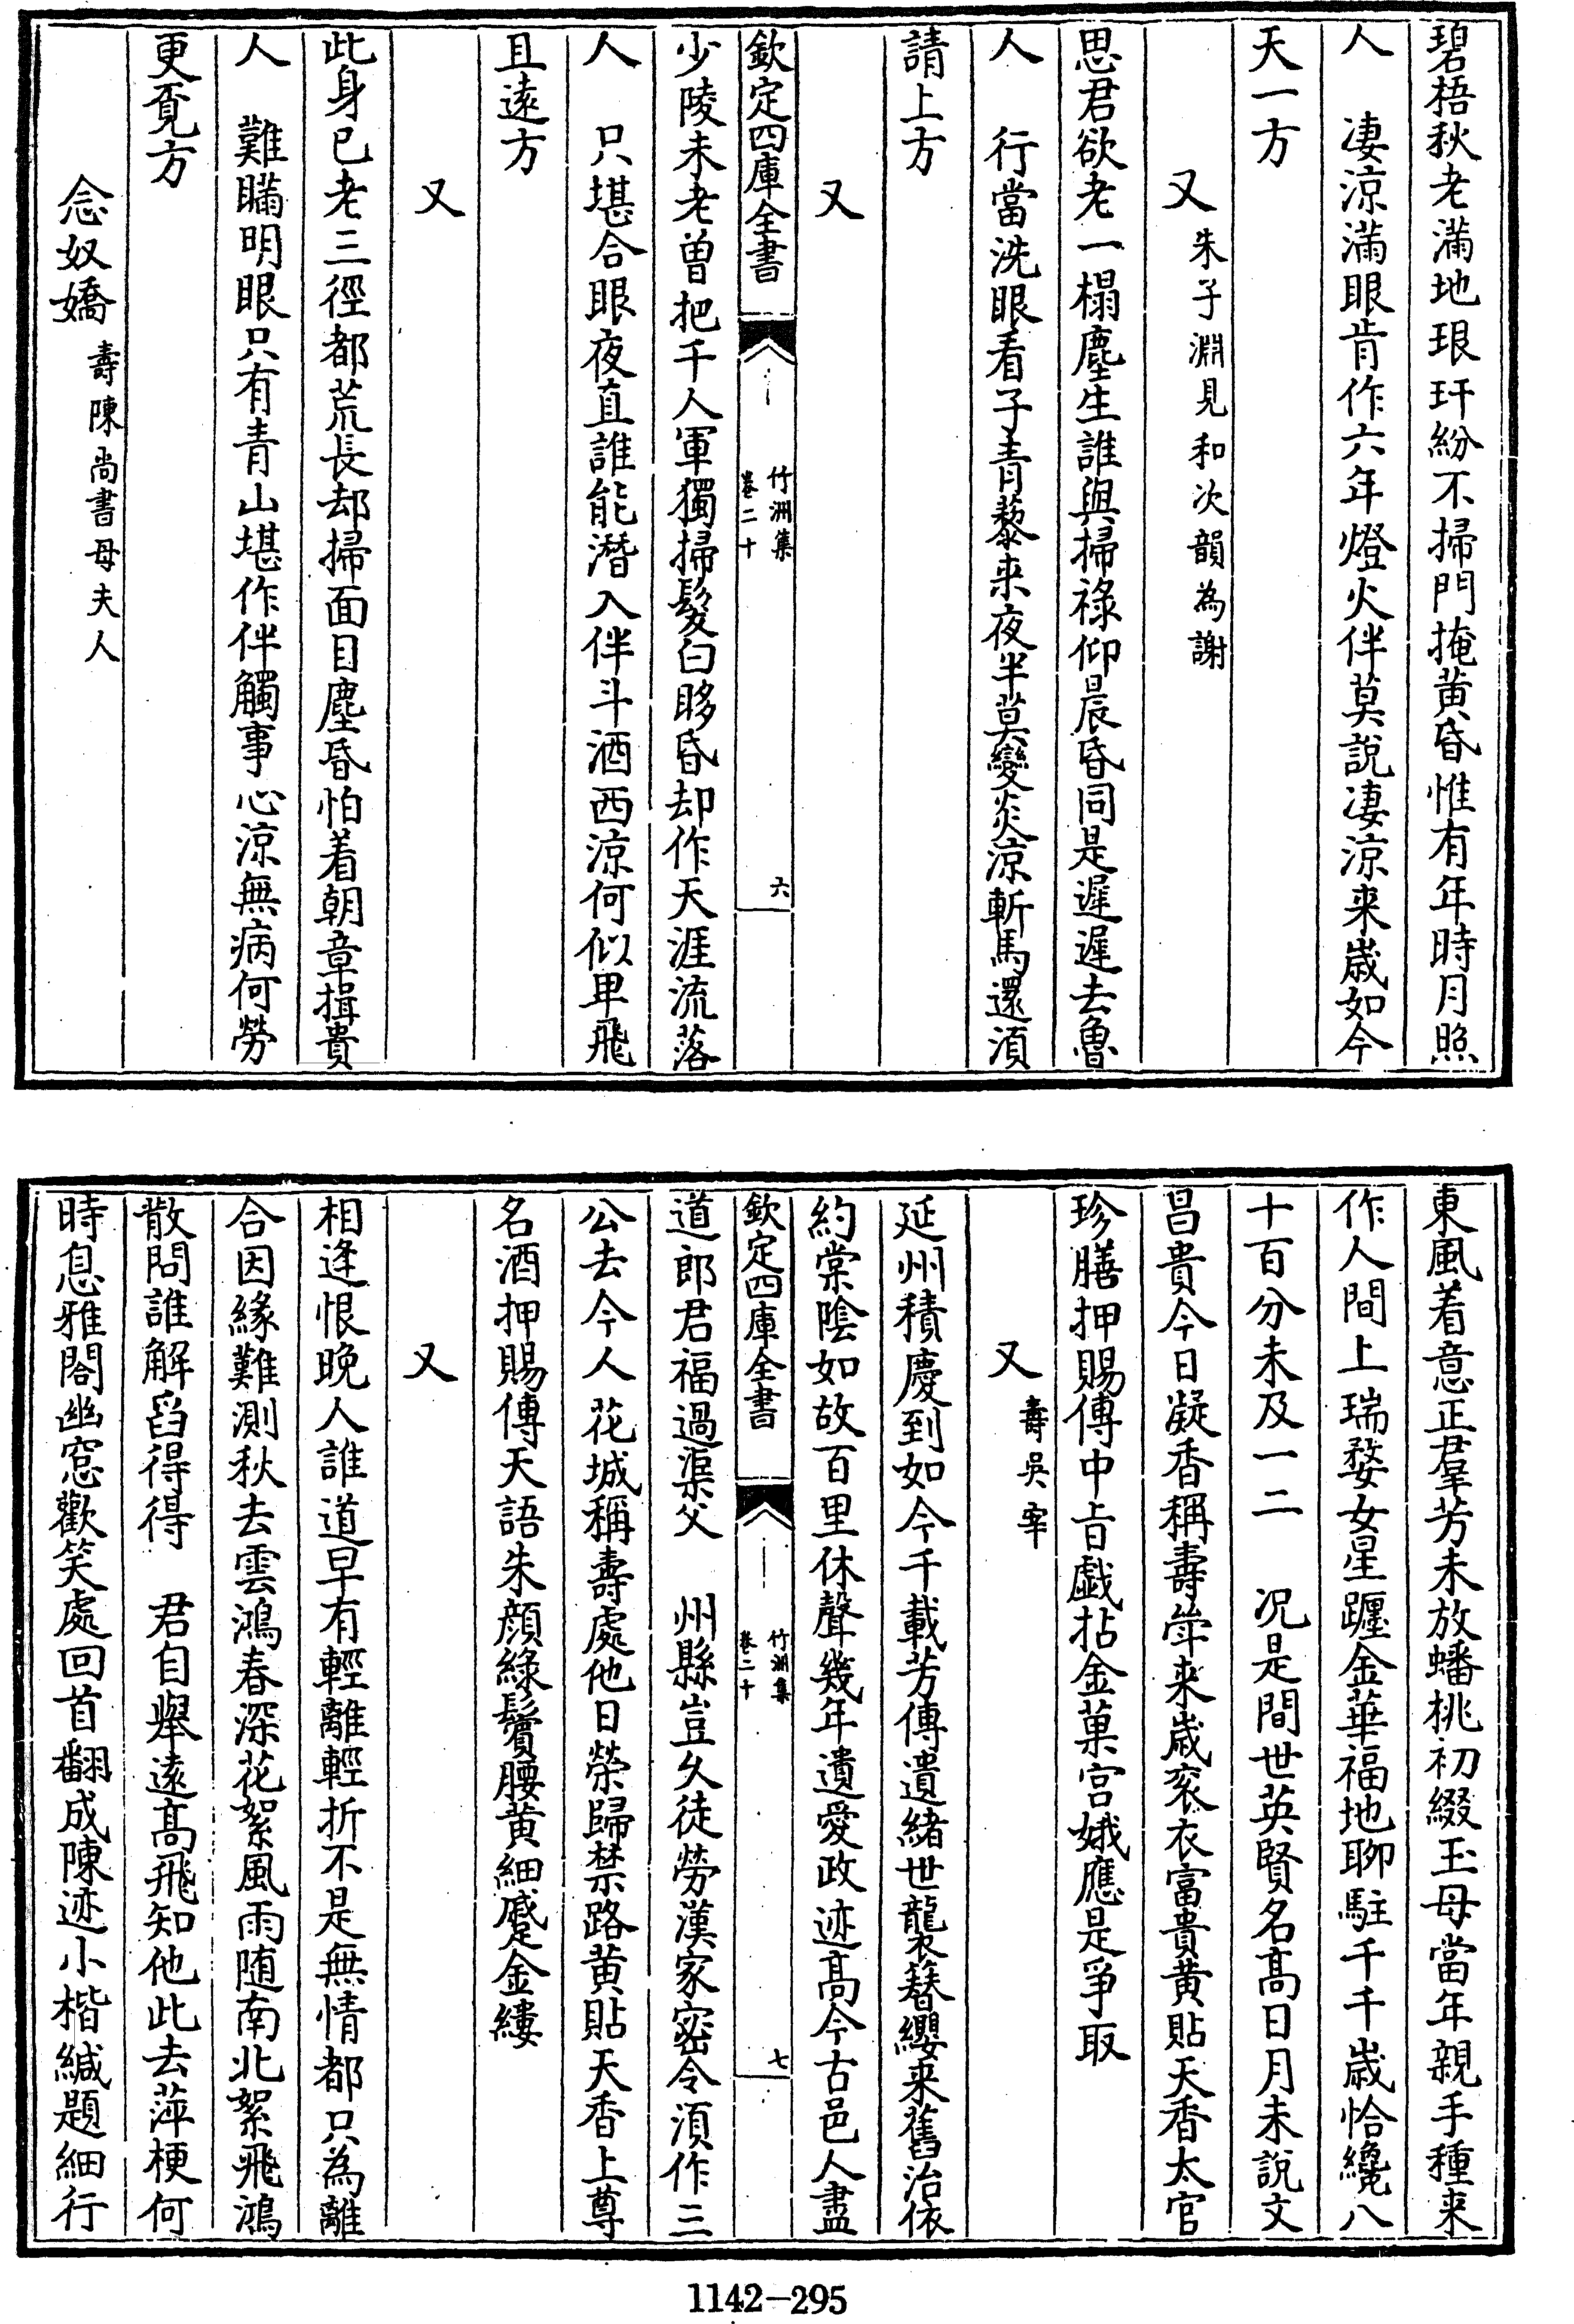 碧梧秋老滿地琅玕紛不掃門掩黄昏惟有年時月照
人　凄涼滿眼肯作六年燈火伴莫說凄涼来歲如今
天一方
又朱子淵見和次韻為謝
思君欲老一榻塵生誰與掃祿仰晨昏同是遲遲去魯
人　行當洗眼看子青藜来夜半莫變炎涼斬馬還湏
請上方
又
欽定四庫全書
竹洲集
卷二十
六
少陵未老曽把千人軍獨掃髮白眵昏却作天涯流落
人　只堪合眼夜直誰能潛入伴斗酒西涼何似卑飛
且遠方
又
此身已老三徑都荒長却掃面目塵昏怕着朝章揖貴
人　難瞞明眼只有青山堪作伴觸事心涼無病何勞
更覔方
念奴嬌壽陳尚書母夫人
東風着意正羣芳未放蟠桃初綴王母當年親手種来
作人間上瑞婺女星躔金華福地聊駐千千歲恰纔八
十百分未及一二　况是間世英賢名髙日月未說文
昌貴今日凝香稱壽斝来歲衮衣富貴黄貼天香太官
珍膳押賜傳中㫖戯拈金菓宫娥應是爭取
又壽吳宰
延州積慶到如今千載芳傳遺緒世襲簪纓来舊治依
約棠隂如故百里休聲幾年遺愛政迹髙今古邑人盡
欽定四庫全書
竹洲集
卷二十
七
道郎君福過渠父　州縣豈久徒勞漢家密令湏作三
公去今人花城稱壽處他日榮歸禁路黄貼天香上尊
名酒押賜傳天語朱顔綠鬢腰黄細蹙金縷
又
相逢恨晚人誰道早有輕離輕折不是無情都只為離
合因緣難測秋去雲鴻春深花絮風雨随南北絮飛鴻
散問誰解舀得得　君自舉逺髙飛知他此去萍梗何
時息雅閤幽窓歡笑處回首翻成陳迹小楷緘題細行
1142-295